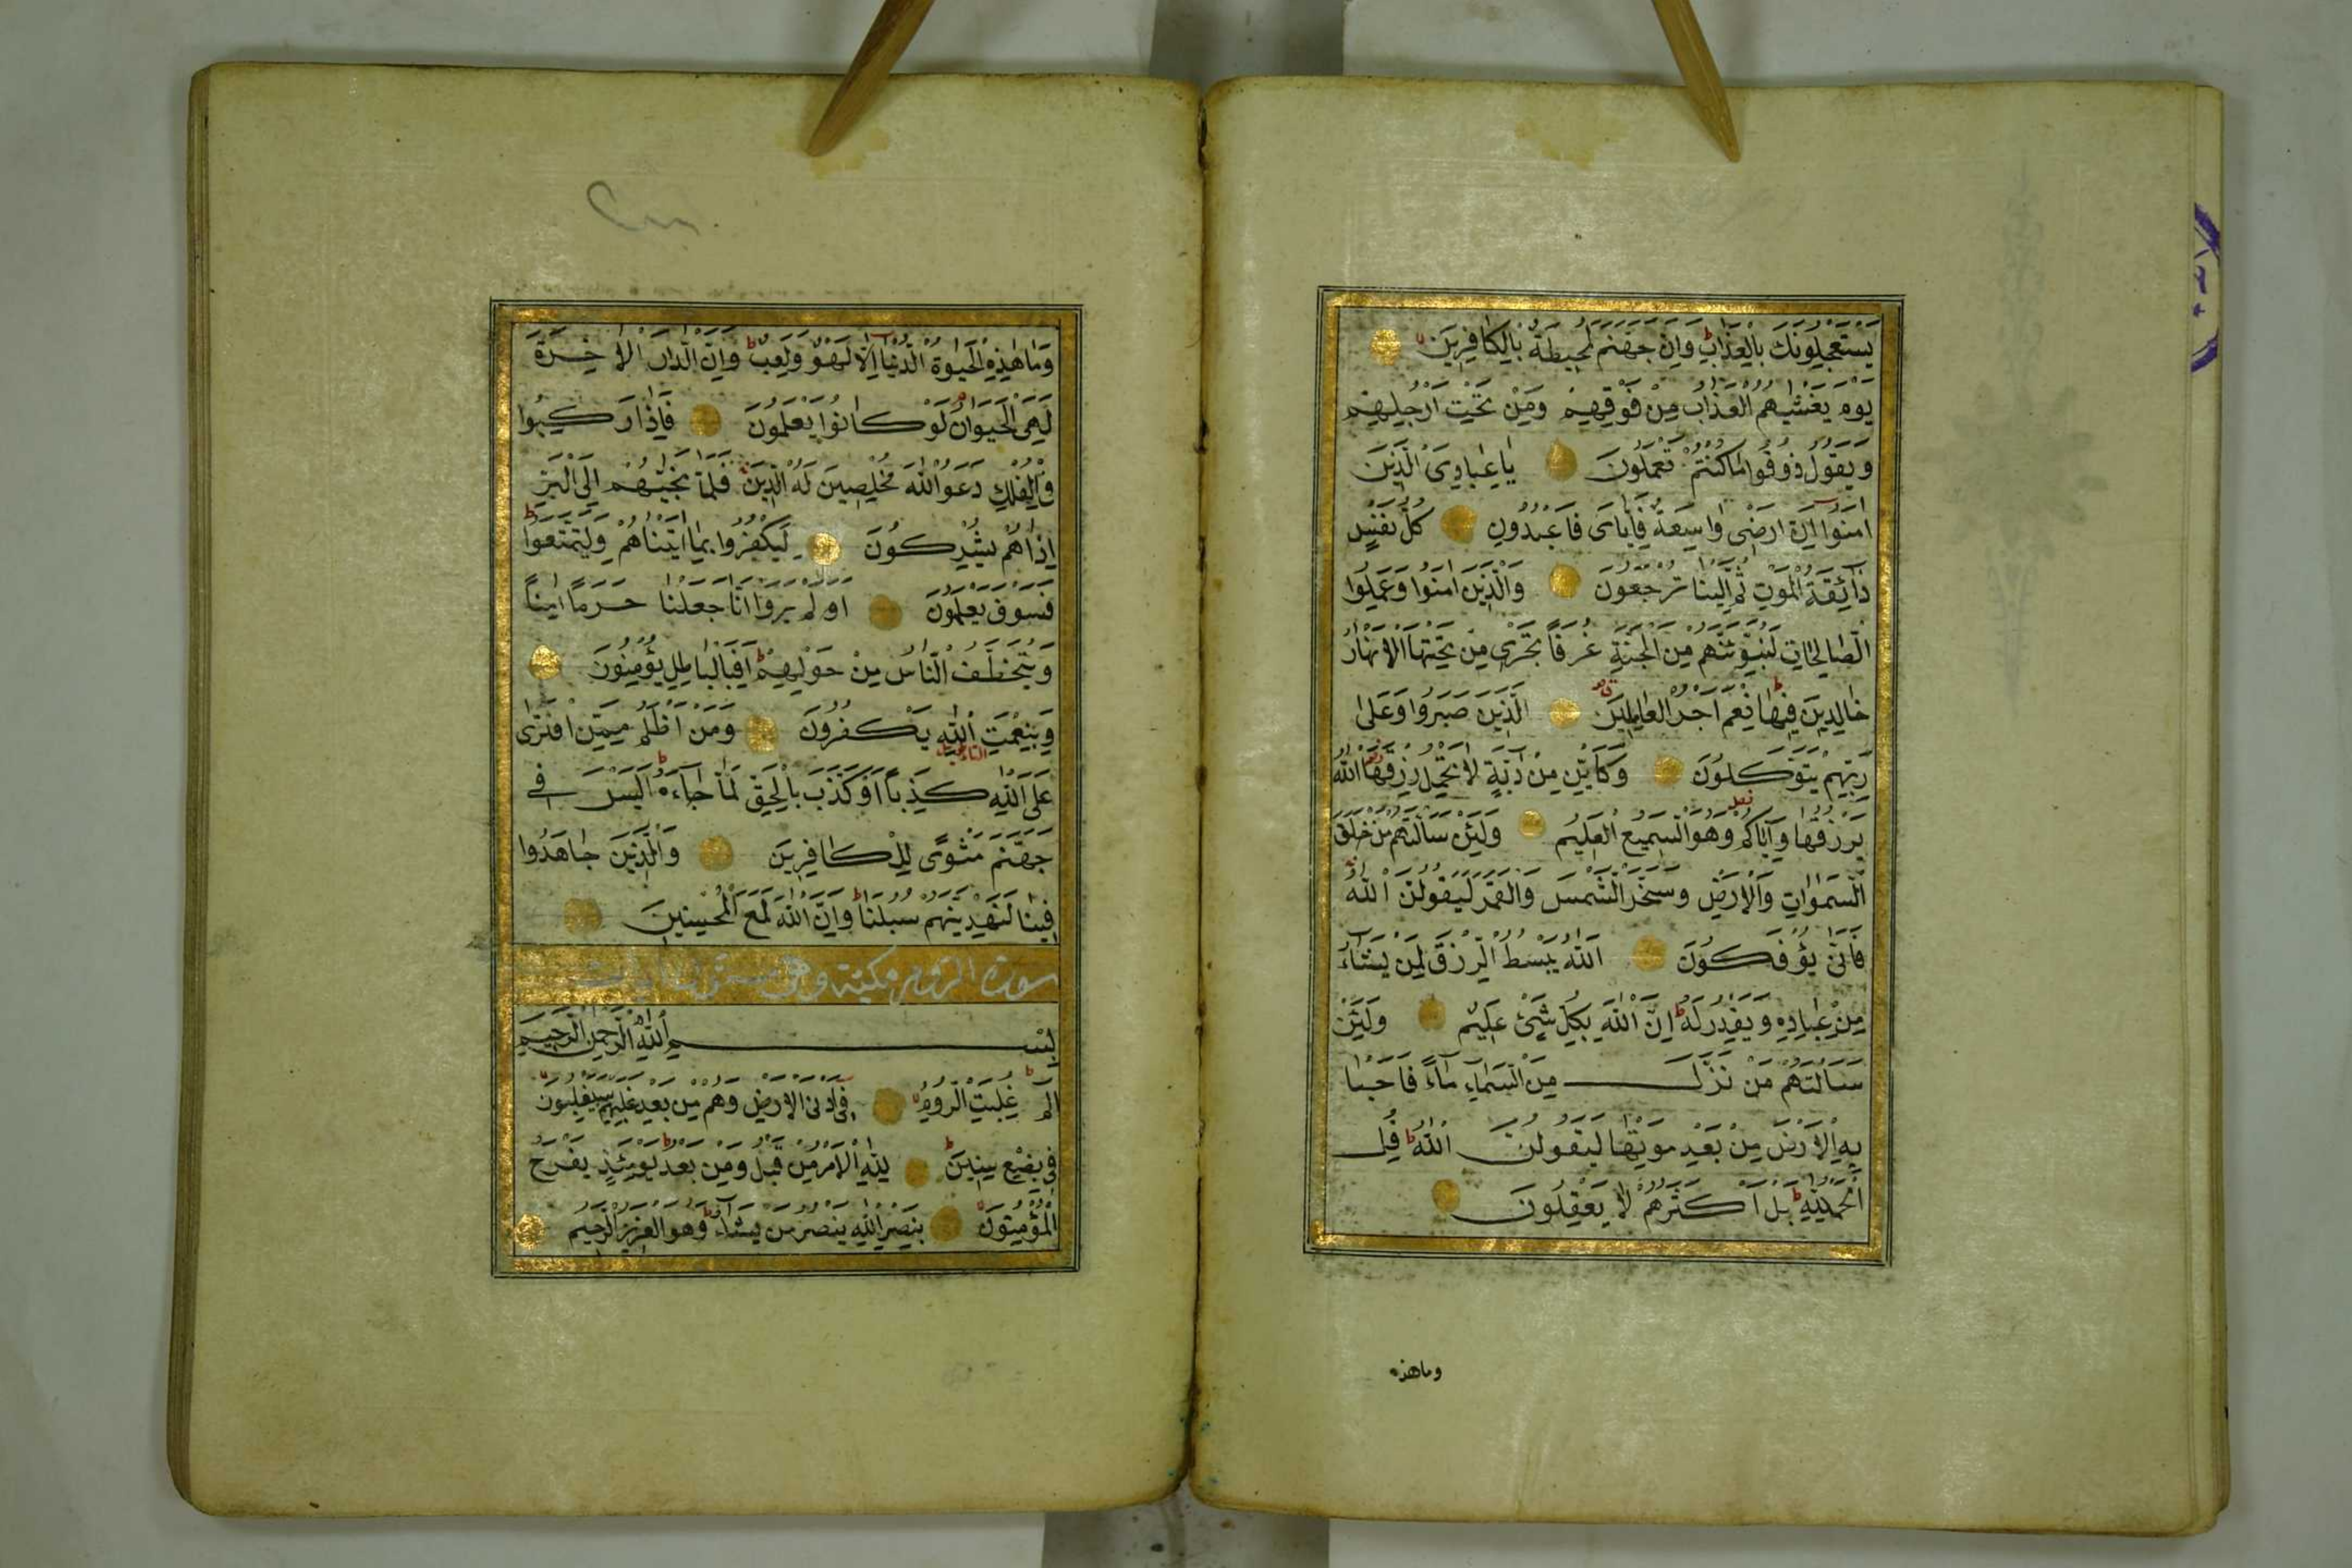 يَسْتَعْجِلُونَكَ بِالْعَذَابِ وَاِنَّ جَهَنَّمَ لَمُحِيطَةٌ بِالْكَافِرِينَ
يَوْمَ يَغْشٰيهُمُ الْعَذَابُ مِنْ فَوْقِهِمْ وَمِنْ تَحْتِ اَرْجُلِهِمْ
وَيَقُولُ ذُوقُوا مَا كُنْتُمْ تَعْمَلُونَ يَا عِبَادِيَ الَّذِينَ
اٰمَنُوا اِنَّ اَرْضِى وَاسِعَةٌ فَاِيَّايَ فَاعْبُدُونِ كُلُّ نَفْسٍ
ذَائِقَةُ الْمَوْتِ ثُمَّ اِلَيْنَا تُرْجَعُونَ وَالَّذِينَ اٰمَنُوا وَعَمِلُوا
الصَّالِحَاتِ لَنُبَوِّئَنَّهُمْ مِنَ الْجَنَّةِ غُرَفًا تَجْرِى مِنْ تَحْتِهَا الْاَنْهَارُ
خَالِدِينَ فِيهَا نِعْمَ اَجْرُ الْعَامِلِينَ الَّذِينَ صَبَرُوا وَعَلٰى
رَبِّهِمْ يَتَوَكَّلُونَ وَكَاَيِّنْ مِنْ دَابَّةٍ لَا تَحْمِلُ رِزْقَهَا اَللّٰهُ
يَرْزُقُهَا وَاِيَّاكُمْ وَهُوَ السَّمِيعُ الْعَلِيمُ وَلَئِنْ سَاَلْتَهُمْ مَنْ خَلَقَ
السَّمٰوَاتِ وَالْاَرْضَ وَسَخَّرَ الشَّمْسَ وَالْقَمَرَ لَيَقُولُنَّ اللّٰهُ
فَاَنّٰى يُؤْفَكُونَ اَللّٰهُ يَبْسُطُ الرِّزْقَ لِمَنْ يَشَاءُ
مِنْ عِبَادِهِ وَيَقْدِرُ لَهُ اِنَّ اللّٰهَ بِكُلِّ شَيْءٍ عَلِيمٌ وَلَئِنْ
سَاَلْتَهُمْ مَنْ نَزَّلَ مِنَ السَّمَاءِ مَاءً فَاَحْيَا
بِهِ الْاَرْضَ مِنْ بَعْدِ مَوْتِهَا لَيَقُولُنَّ اللّٰهُ قُلِ
الْحَمْدُ لِلّٰهِ بَلْ اَكْثَرُهُمْ لَا يَعْقِلُونَ
وماهذه
وَمَا هٰذِهِ الْحَيٰوةُ الدُّنْيَا اِلَّا لَهْوٌ وَلَعِبٌ وَاِنَّ الدَّارَ الْاٰخِرَةَ
لَهِيَ الْحَيَوَانُ لَوْ كَانُوا يَعْلَمُونَ فَاِذَا رَكِبُوا
فِي الْفُلْكِ دَعَوُا اللّٰهَ مُخْلِصِينَ لَهُ الدِّينَ فَلَمَّا نَجّٰيهُمْ اِلَى الْبَرِّ
اِذَا هُمْ يُشْرِكُونَ لِيَكْفُرُوا بِمَا اٰتَيْنَاهُمْ وَلِيَتَمَتَّعُوا
فَسَوْفَ يَعْلَمُونَ اَوَلَمْ يَرَوْا اَنَّا جَعَلْنَا حَرَمًا اٰمِنًا
وَيُتَخَطَّفُ النَّاسُ مِنْ حَوْلِهِمْ اَفَبِالْبَاطِلِ يُؤْمِنُونَ
وَبِنِعْمَتِ اللّٰهِ يَكْفُرُونَ وَمَنْ اَظْلَمُ مِمَّنِ افْتَرٰى
عَلَى اللّٰهِ كَذِبًا اَوْ كَذَّبَ بِالْحَقِّ لَمَّا جَاءَهُ اَلَيْسَ فِى
جَهَنَّمَ مَثْوًى لِلْكَافِرِينَ وَالَّذِينَ جَاهَدُوا
فِينَا لَنَهْدِيَنَّهُمْ سُبُلَنَا وَاِنَّ اللّٰهَ لَمَعَ الْمُحْسِنِينَ
سورة الروم مكية وهى ستون ايات
بِسْمِ اللّٰهِ الرَّحْمٰنِ الرَّحِيمِ
الم غُلِبَتِ الرُّومُ فِى اَدْنَى الْاَرْضِ وَهُمْ مِنْ بَعْدِ غَلَبِهِمْ سَيَغْلِبُونَ
فِى بِضْعِ سِنِينَ لِلّٰهِ الْاَمْرُ مِنْ قَبْلُ وَمِنْ بَعْدُ وَيَوْمَئِذٍ يَفْرَحُ
الْمُؤْمِنُونَ بِنَصْرِ اللّٰهِ يَنْصُرُ مَنْ يَشَاءُ وَهُوَ الْعَزِيزُ الرَّحِيمُ